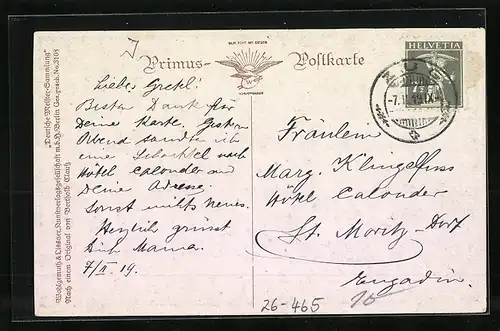 "Deutsche Meister-Sammlung"
Wohlgemuth & Lissner, Kunstverlagsgesellschaft m.b.H. Berlin Ges. gesch. No. 3108
Nach einem Original von Berthold Clauß
Primus-Postkarte
Liebes Gretl!
Besten Dank für
Deine Karte. Gestern
Abend sandte ich
eine Schachtel nach
Hôtel Calonder an
Deine Adresse.
Sonst nichts Neues.
Herzlich grüsst
Dich Mama.
7/II 19.
HELVETIA
7½
ZUG
-7.II.19.IX-
Fräulein
Marg. Klingelfuss
Hôtel Calonder
St. Moritz-Dorf
Engadin.
26-465